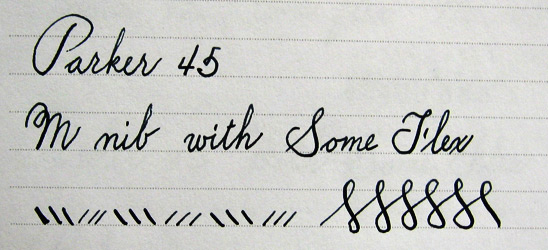 Parker 45
M nib with Some Flex